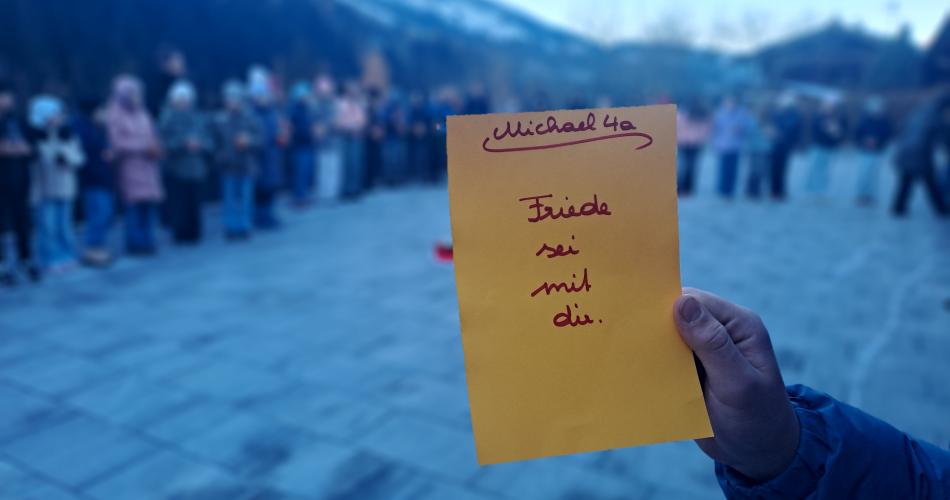 Michael 4a
Friede
sei
mit
dir.